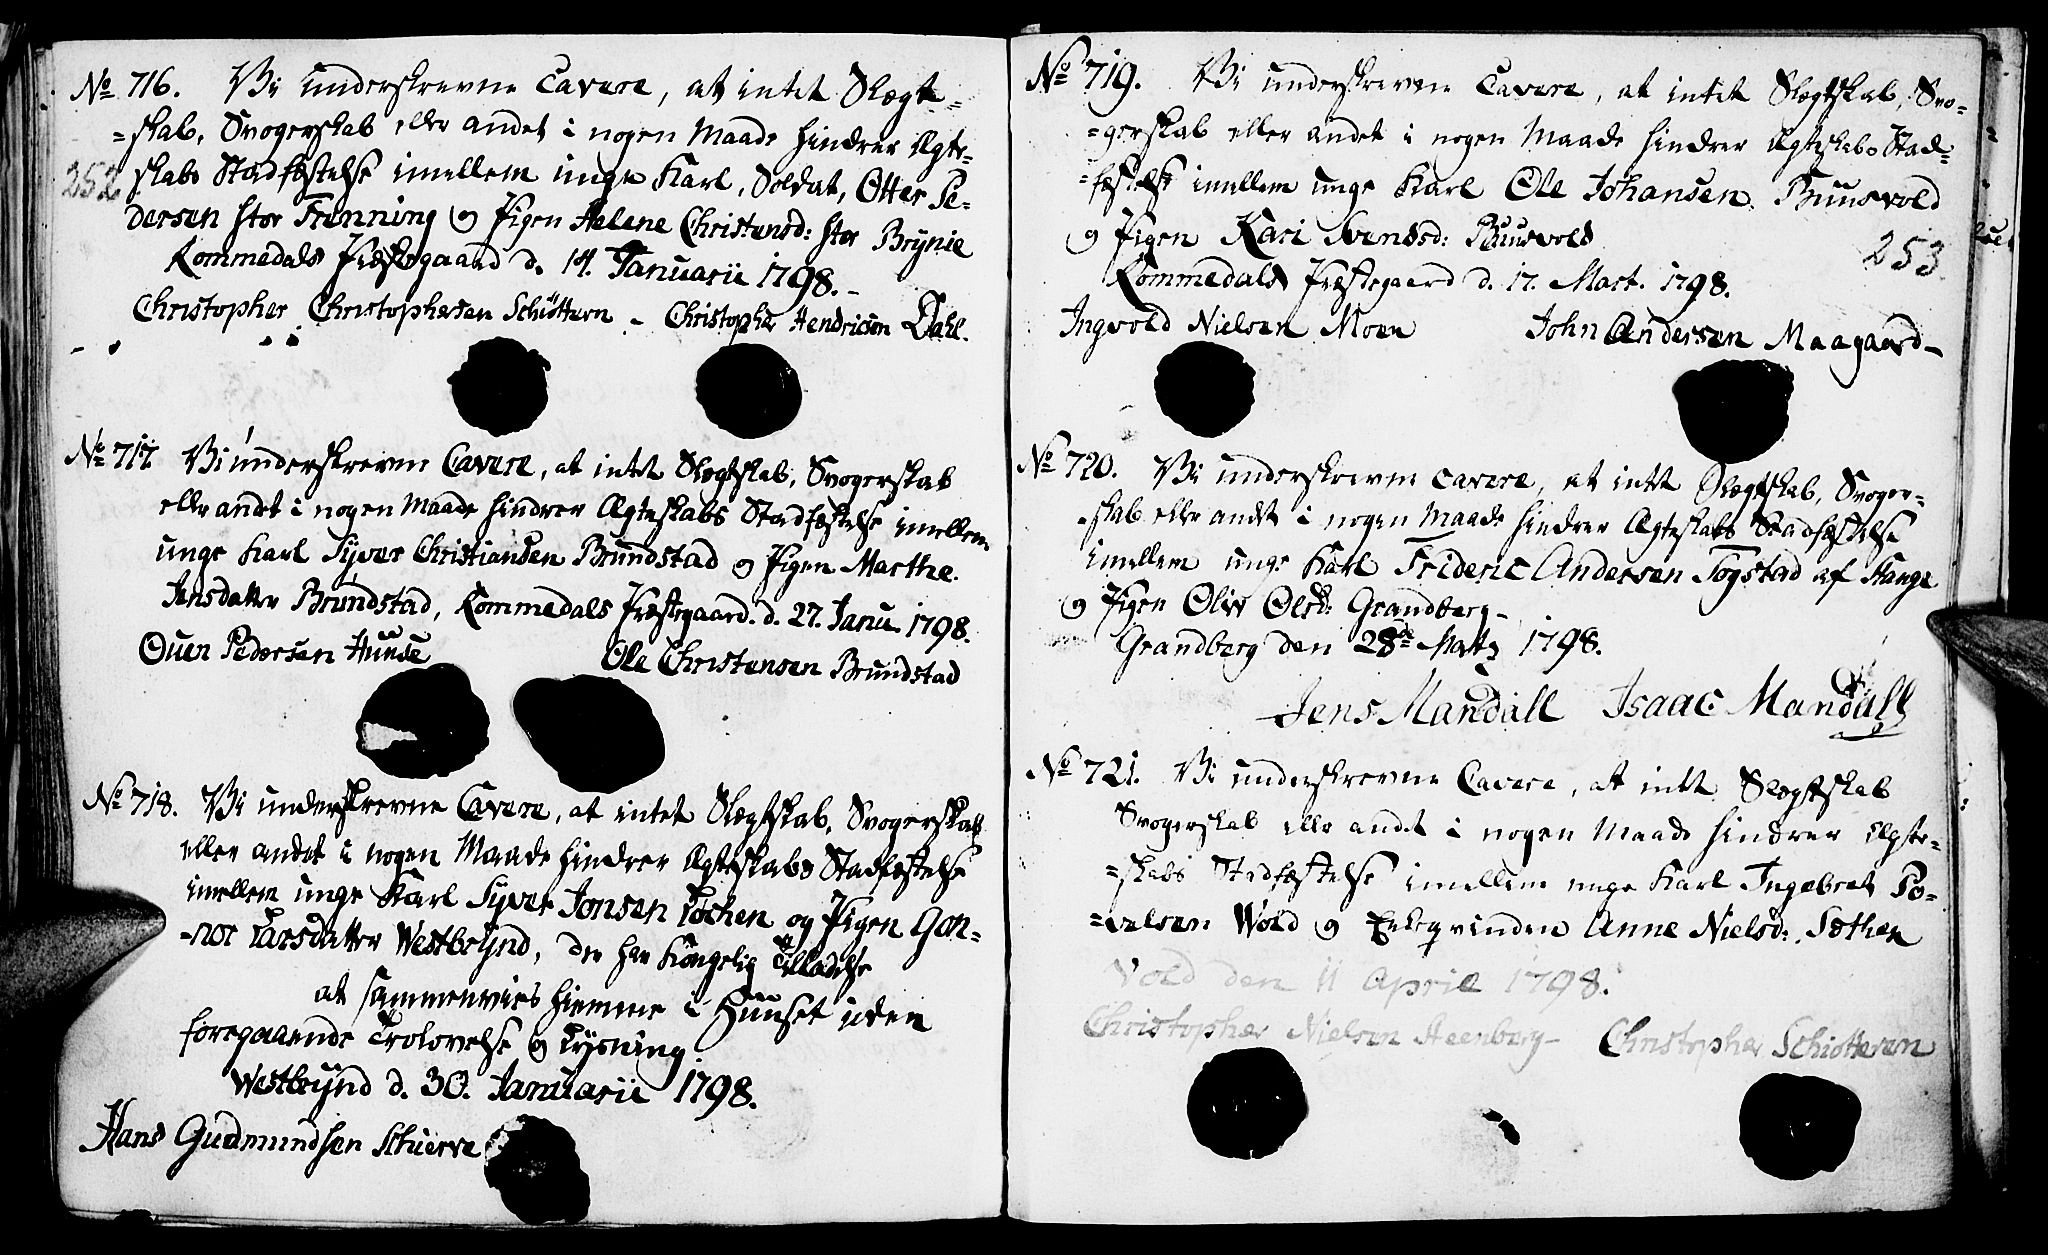 No 716. Vi underskrevne Cavere, at intet Slægt=
=skab, Svogerskab eller andet i nogen Maade hindrer Ægte=
252
skabs Stadfæstelse imellem unge Karl, Soldat, Otter Pe=
dersen stor Frenning og Pigen Helene Christensd: stor Brynie
Rommedals Præstegaard d. 14. Januarii 1798.
Christopher Christophersen Schiøttern - Christopher Hendricsen Dahl.
No 717. Vi underskrevne Cavere, at intet Slægtskab, Svogerskab
eller andet i nogen Maade hindrer Ægteskabs Stadfæstelse imellem
unge Karl Syver Christiansen Brundstad og Pigen Marthe
Jensdatter Brundstad, Rommedals Præstegaard. d. 27. Janu. 1798.
Ouen Pedersen Huuse Ole Christensen Brundstad
No 718. Vi underskrevne Cavere, at intet Slægtskab, Svogerskab
eller andet i nogen Maade hindrer Ægteskabs Stadfæstelse
imellem unge Karl Syver Jonsen Løchen og Pigen Gon=
=nor Larsdatter Westbrynd, der har Kongelig Tilladelse
at sammenvies hiemme i Huuset uden
foregaaende Trolovelse og Lysning.
Westbrynd d. 30. Januarii 1798.
Hans Gudmundsen Schierve
No 719. Vi underskrevne Cavere, at intet Slægtskab, Svo=
=gerskab eller andet i nogen Maade hindrer Ægteskabs Stad=
=fæstelse imellem unge Karl Ole Johansen Buusvold
og Pigen Kari Svendsd: Buusvold
253
Rommedals Præstegaard d. 17. Mart. 1798.
Ingvold Nielsen Moen John Andersen Maagaard
No 720. Vi underskrevne cavere, at intet Slægtskab, Svoger=
=skab eller andet i nogen Maade hindrer Ægteskabs Stadfæstelse
imellem unge Karl Frideric Andersen Togstad af Stange
og Pigen Oliv Olsd: Grandberg
Grandberg den 28de Martz 1798.
Jens Mandall Isaac Mandall
No 721. Vi underskrevne Cavere, at intet Slægtskab
Svogerskab eller andet i nogen Maade hindrer Ægte=
=skabs Stadfæstelse imellem unge Karl Ingebret Po=
=velsen Wold og Enkeqvinden Anne Nielsd: Sæthen
Vold den 11 April 1798.
Christopher Nielsen Steenberg Christopher Schiøtteren